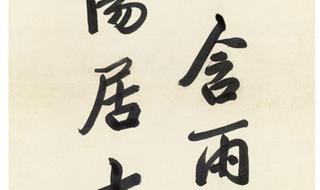 含雨
陽居